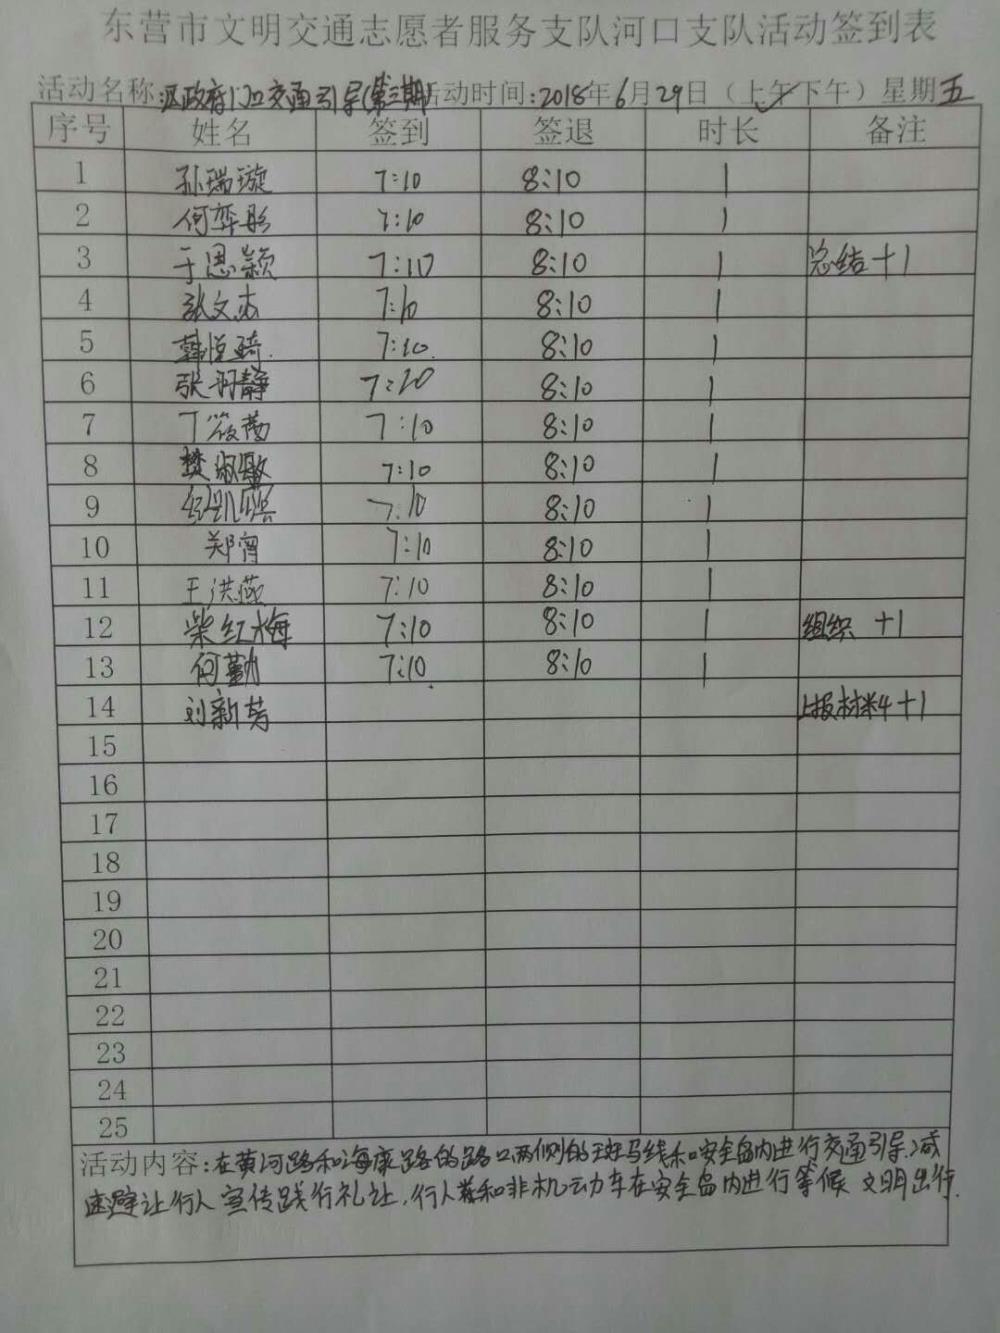 东营市文明交通志愿者服务支队河口支队活动签到表
活动名称:区政府门口交通引导(第三期)活动时间:2018年6月29日（上午下午）星期五
序号 姓名 签到 签退 时长 备注
1 孙瑞璇 7:10 8:10 1
2 何弈彤 7:10 8:10 1
3 于思颖 7:10 8:10 1 总结+1
4 张文杰 7:10 8:10 1
5 韩恒琦 7:10 8:10 1
6 张羽静 7:20 8:10 1
7 丁筱茜 7:10 8:10 1
8 樊淑敏 7:10 8:10 1
9 7:10 8:10 1
10 郑霄 7:10 8:10 1
11 王洪燕 7:10 8:10 1
12 柴红梅 7:10 8:10 1 组织 +1
13 何勤 7:10 8:10 1
14 刘新芳 上报材料+1
15
16
17
18
19
20
21
22
23
24
25
活动内容:在黄河路和海康路的路口两侧的斑马线和安全岛内进行交通引导.减
速避让行人 宣传践行礼让.行人和非机动车在安全岛内进行等候 文明出行.